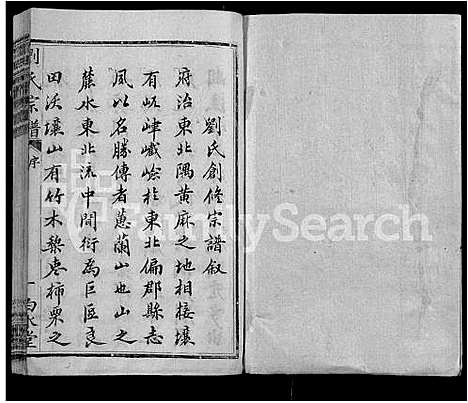 劉氏創修宗譜敘
府治東北隅黃麻之地相接壤
有屹嶂巉嶮於東北偏郡縣志
夙以名勝傳者蔥蘭山也山之
麓水東北流中間衍為巨區良
田沃壤山有竹木藜棗柿栗之
劉氏宗譜
序
一
堂
FamilySearch